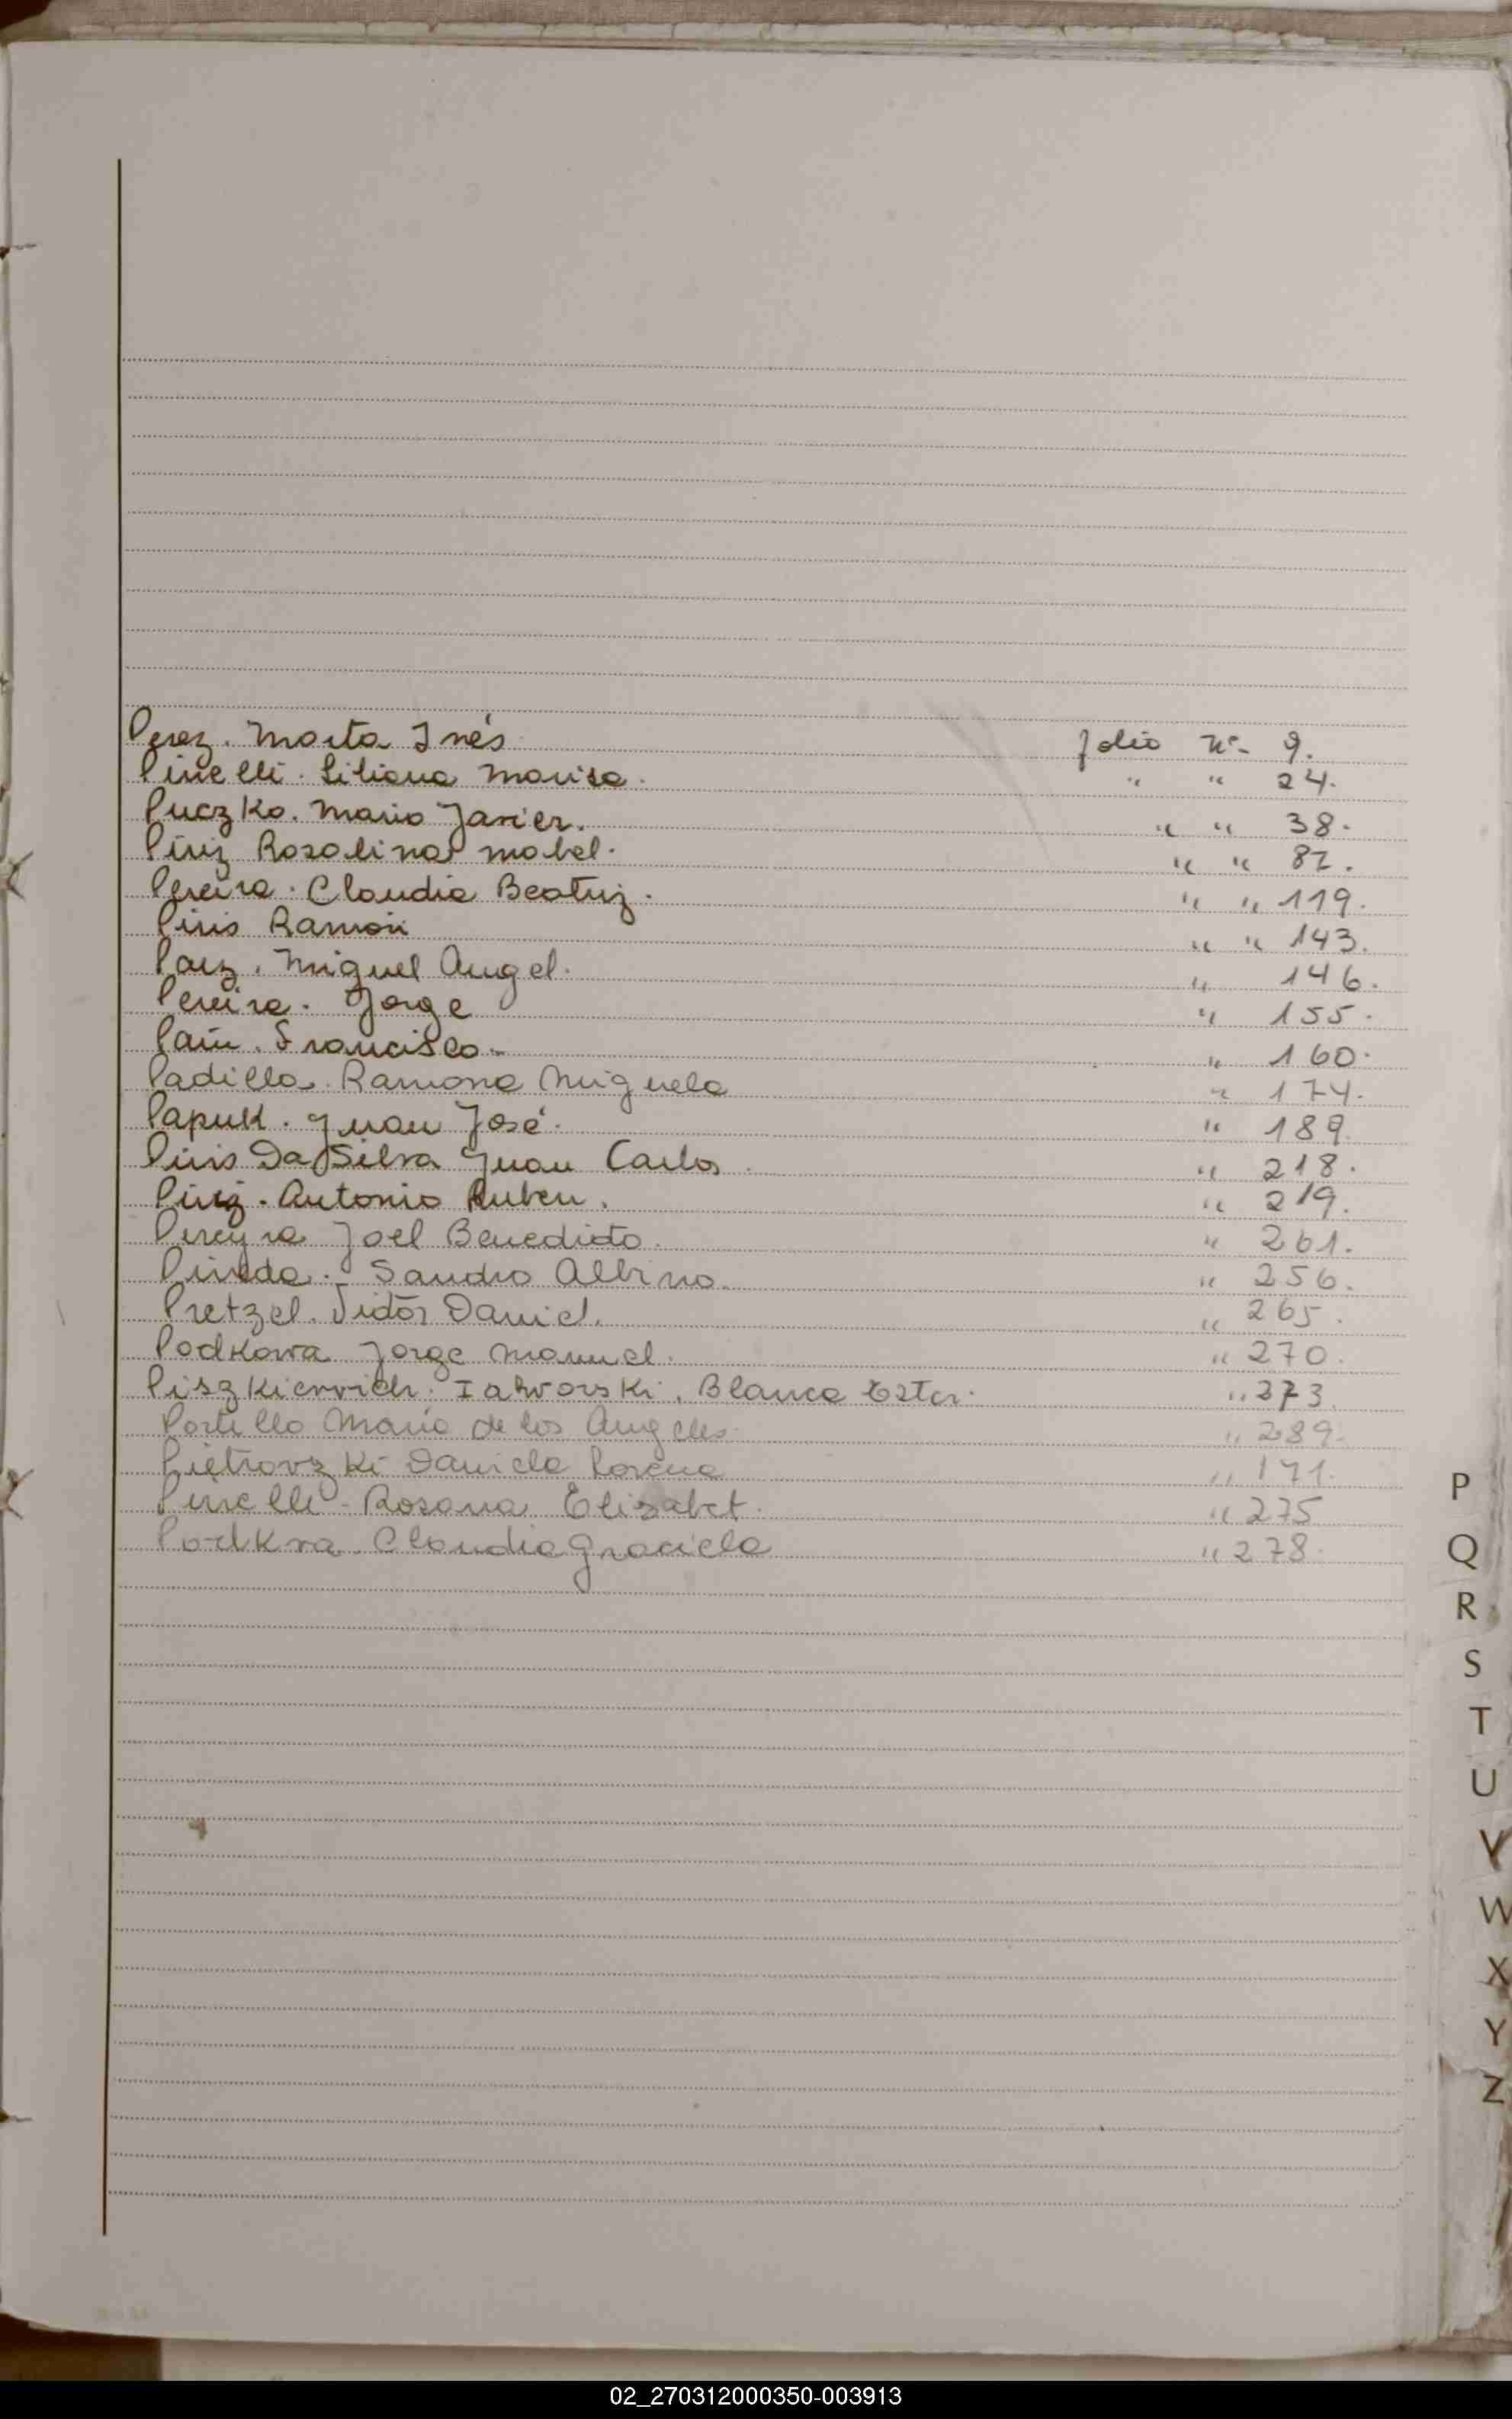 Perez. Marta Inés folio Nº- 9.
Pinelli. Liliana Marisa. " " 24.
Puczko. Mario Javier. " " 38.
Piriz Rosalina Mabel. " " 82.
Pereira. Claudia Beatriz. " " 119.
Piris Ramón " " 143.
Paez. Miguel Angel. " 146.
Pereira. Jorge " 155.
Francisco. " 160.
Padilla. Ramona Miguela " 174.
Papuk. Juan José. " 189.
Piris Da Silva Juan Carlos. " 218.
Piriz. Antonio Ruben. " 219.
Pereyra Joel Benedicto. " 261.
Pineda. Sandro Albino. " 256.
Pretzel. Victor Daniel. " 265.
Podkowa Jorge Manuel. " 270.
Blanca Ester. " 273.
Portillo Maria de los Angeles. " 289.
Pietrovzki Daniela Lorena " 171.
Pinelli - Rosana Elizabet. " 275
Podkva. Claudia Graciela " 278.
P
Q
R
S
T
U
V
W
X
Y
Z
02_270312000350-003913